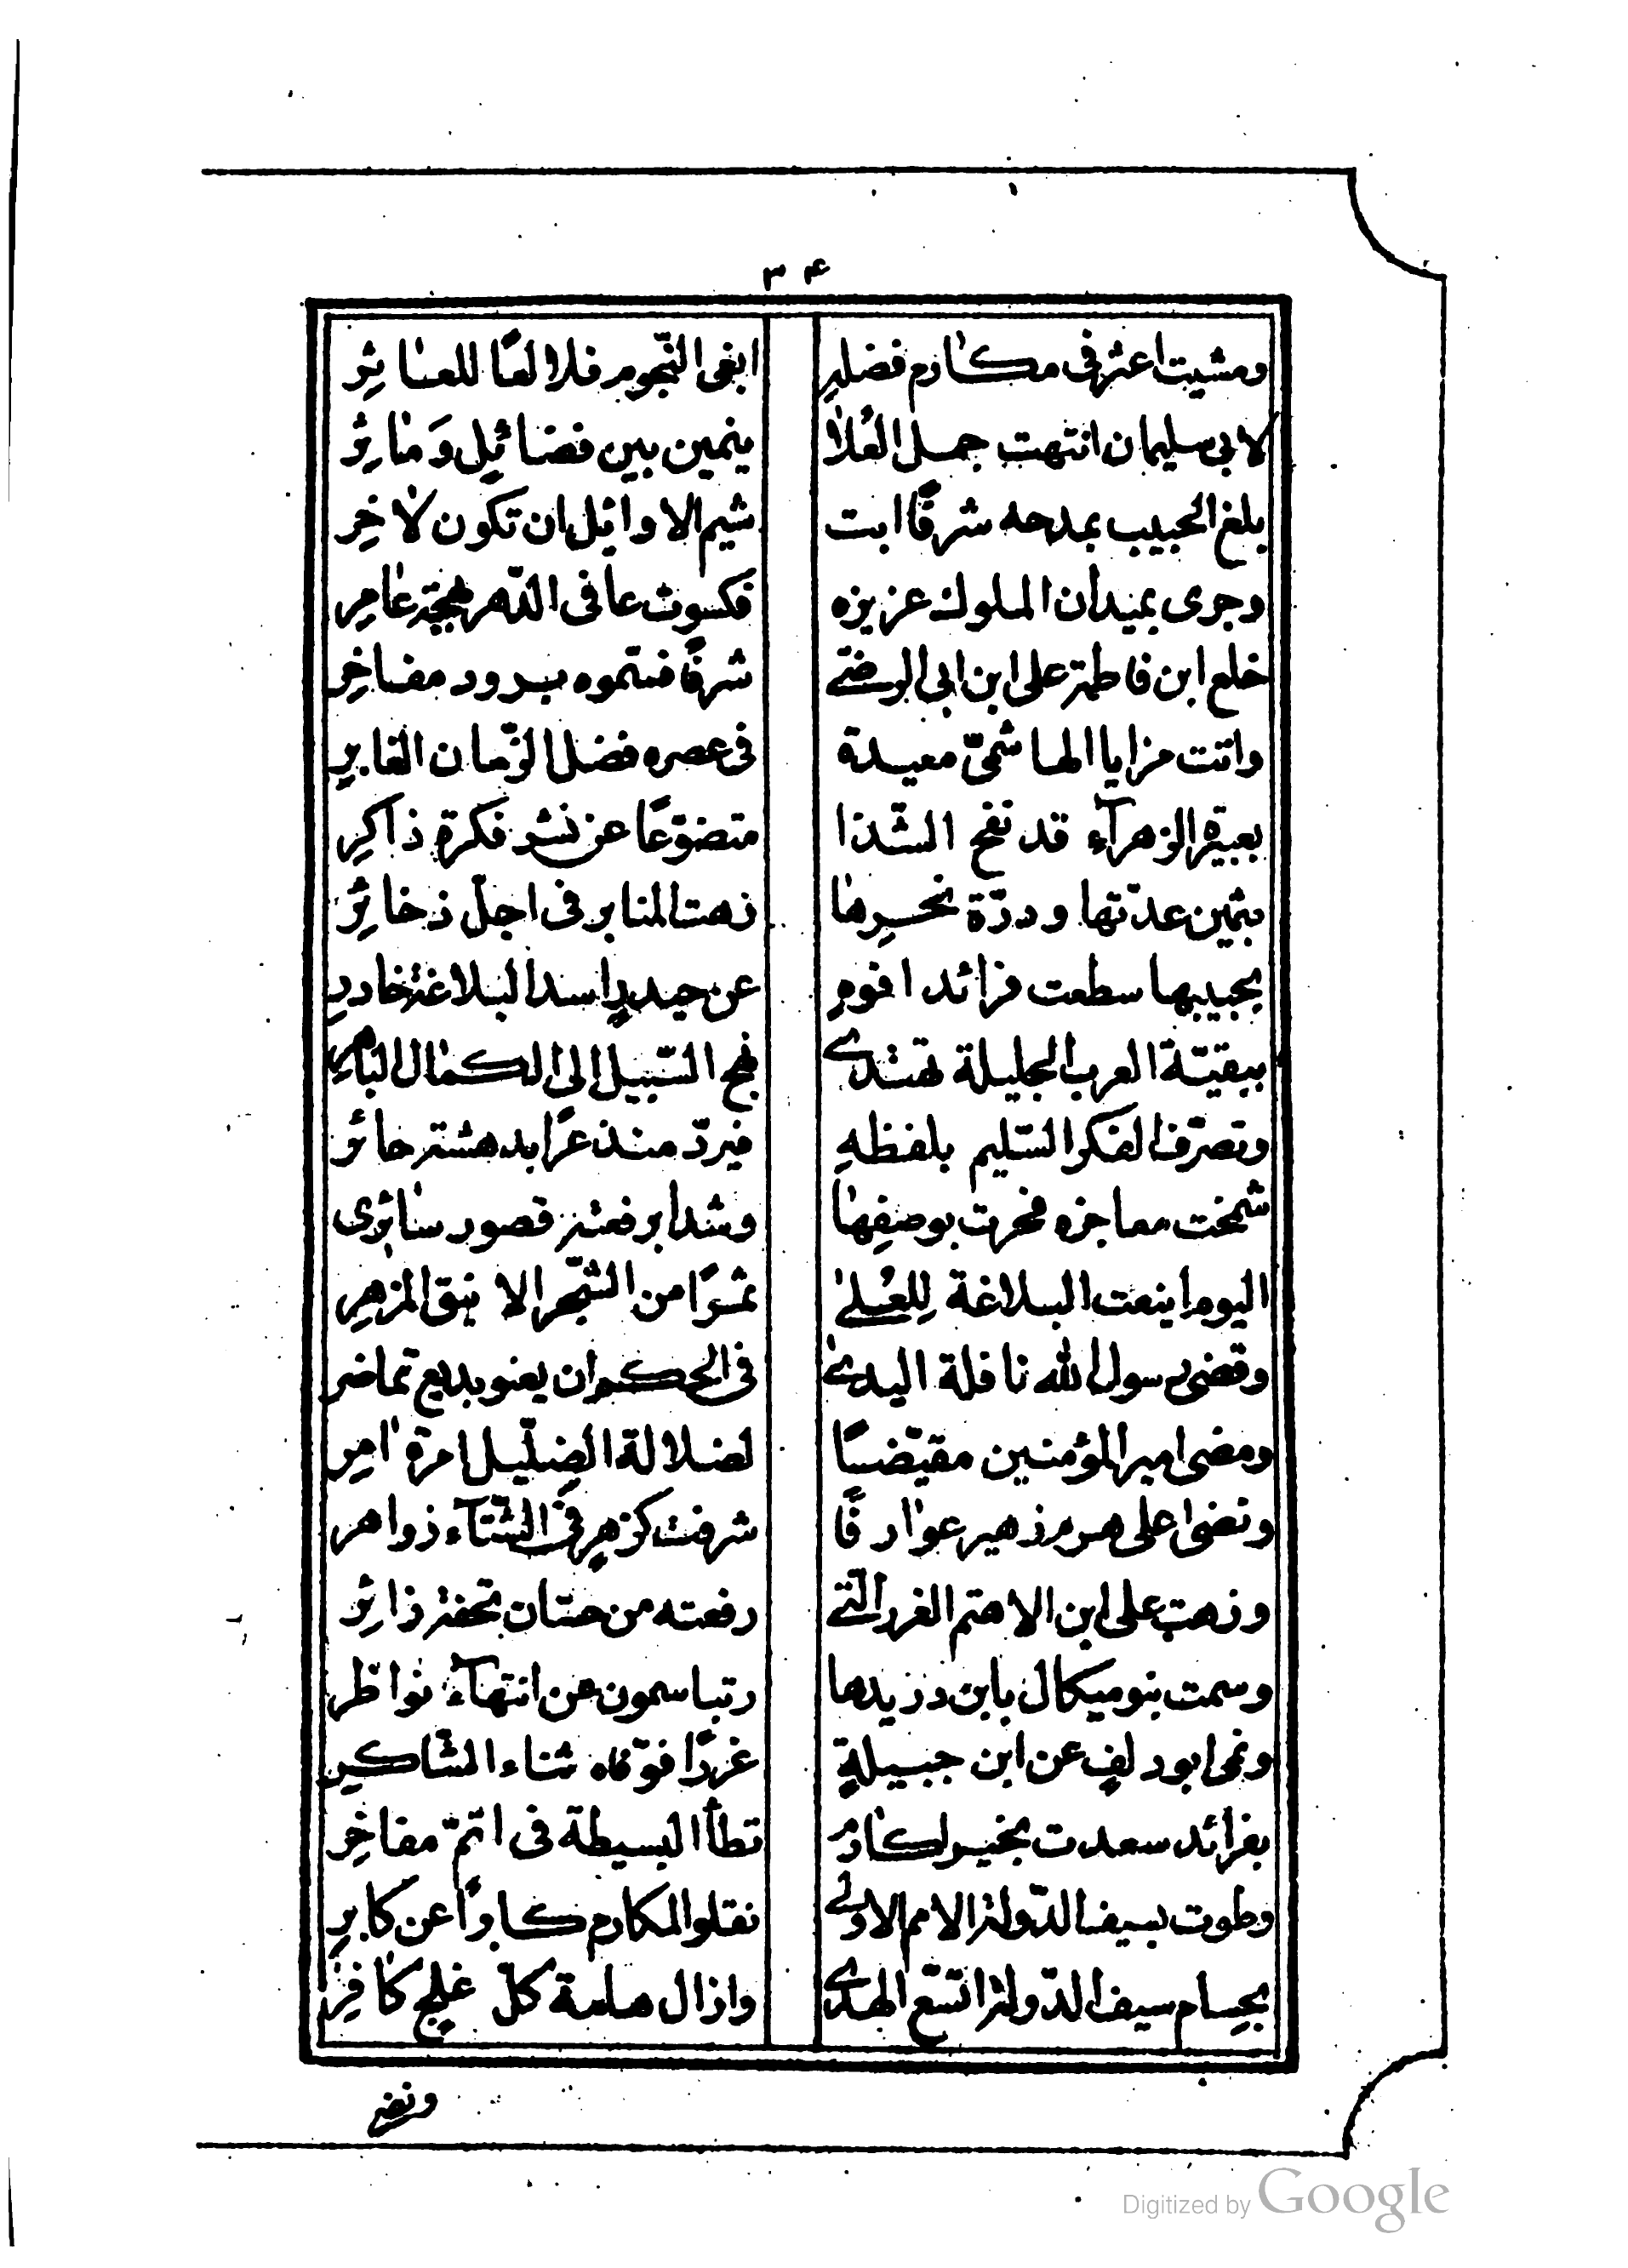 ٣٤
ومشيت اعثر فى مكارم فضلهِ ابغى النّجوم فلا لعًا للعاثِر
لابى سليمان انتهت جمل العُلا ينمين بين فضائلٍ وَماثِر
بلغ الحبيب بمدحه شرفًا ابت شيم الاوائل ان تكون لاخِر
وجرى بميدان الملوك عزيزه فكسوت عافى الدّهر بهجة عامِر
خلع ابن فاطمة على ابن ابى الرضى شرفًا فتمموه ببرود مفاخِر
واتت مزايا الهاشمىّ معيدة فى عصره فضل الزّمان الغابرِ
بعبيرة الزهرآء قد نفح الشّذا متضوّعًا عن نشر فكرة ذاكِر
بثمين عدّتها ودرّة نحرِها زهت المنابر فى اجلّ ذخائِر
بحبيبها سطعت فرائد افوهِ عن حيدرٍ اسد البلاغة خادرِ
ببقيّة العرب الجليلة تهتدى نهج السّبيل الى الكمال الباهرِ
وتصرّف الفكر السّليم بلفظهِ فيردّ منذعرًا بدهشة حائر
شمخت معاجزه فخرت بوصفِها وشدا برفعته قصور سائرى
اليوم اينعت البلاغة لِلعُلىٰ ثمرًا من الشّجر الانيق المزهرِ
وقضى رسول الله نافلة اليدىٰ فى الحكم ان يعنو بديع تماضر
ومضى امير المؤمنين مقيّضًا لضلالة الضِلّيل امرة امرِ
ونضوا على هرم زهير عوارفًا شرفت كزهرٍ فى الشّتآء زواهر
وزهت على ابن الاهتم الغرر الّتى رفعته من حسّان تحفة زائِر
وسمت بنو ميكال بابن دريدها رتبا سمون عن انتهآء نواظر
ونمى ابو دلفٍ عن ابن جبيلةٍ غررًا فوّفاه ثناء الشّاكرِ
بفرائد سعدت بخير لكارم تطأ البسيطة فى اتمّ مفاخِر
وطوت بسيف الدّولة الامم الاولى نقلوا المكارم كابرًا عن كابرِ
بحسام سيف الدّولة اتسّع الهدى وازال هامة كلّ علجٍ كافِر
ونضى
Digitized by Google